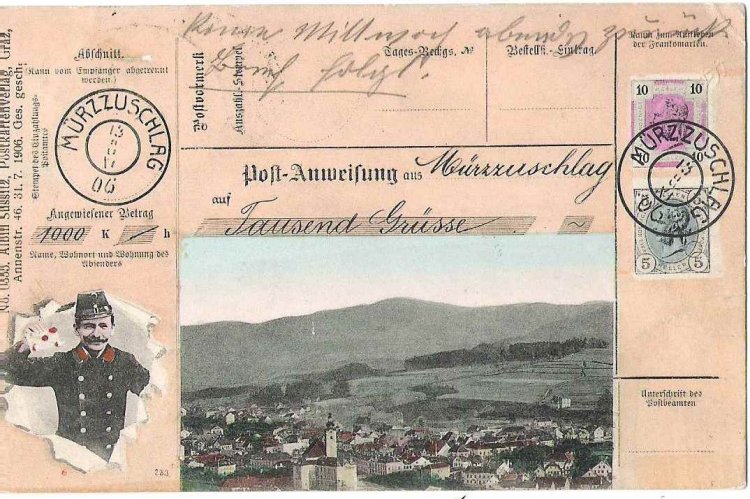 komme Mittwoch abends zurück
Brief folgt!
Abschnitt.
(Kann vom Empfänger abgetrennt
werden.)
Stempel des Einzahlungs-
Postamtes
MÜRZZUSCHLAG
13
06
Angewiesener Betrag
1000 K h
Name, Wohnort und Wohnung des
Absenders
Albin Sussitz, Postkartenverlag, Graz,
Annenstr. 46. 31. 7. 1906. Ges. gesch.
Postvormerk
Auszahl.-Stempel
Tages-Rechgs. №
Bestellk.-Eintrag
Raum zum Aufkleben
der Frankomarken.
Post-Anweisung aus Mürzzuschlag
auf Tausend Grüsse
10 10
MÜRZZUSCHLAG
5 5
Unterschrift des
Postbeamten